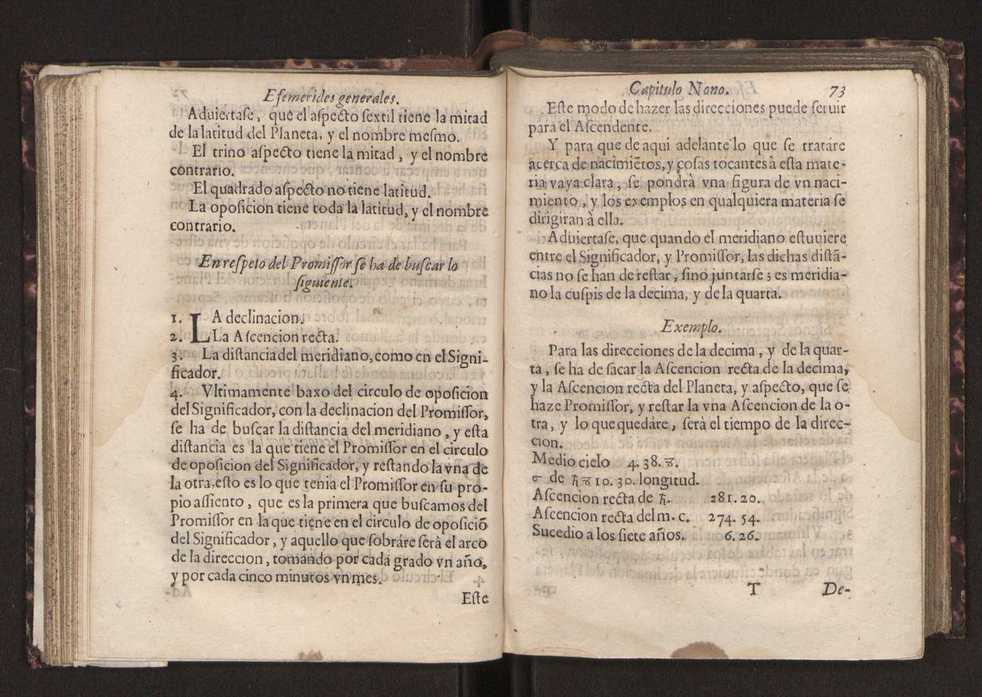 Efemerides generales.
Aduiertase, que el aspecto sextil tiene la mitad
de la latitud del Planeta, y el nombre mesmo.
El trino aspecto tiene la mitad, y el nombre
contrario.
El quadrado aspecto no tiene latitud.
La oposicion tiene toda la latitud, y el nombre
contrario.
En respeto del Promissor se ha de buscar lo
siguiente.
1. LA declinacion.
2. La Ascencion recta.
3. La distancia del meridiano, como en el Signi-
ficador.
4. Vltimamente baxo del circulo de oposicion
del Significador, con la declinacion del Promissor,
se ha de buscar la distancia del meridiano, y esta
distancia es la que tiene el Promissor en el circulo
de oposicion del Significador, y restando la vna de
la otra, esto es lo que tenia el Promissor en su pro-
pio assiento, que es la primera que buscamos del
Promissor en la que tiene en el circulo de oposiciõ
del Significador, y aquello que sobràre serà el arco
de la direccion, tomando por cada grado vn año,
y por cada cinco minutos vn mes.
Este
Capitulo Nono. 73
Este modo de hazer las direcciones puede seruir
para el Ascendente.
Y para que de aqui adelante lo que se tratare
acerca de nacimiẽtos, y cosas tocantes à esta mate-
ria vaya clara, se pondrà vna figura de vn naci-
miento, y los exemplos en qualquiera materia se
dirigiran à ella.
Aduiertase, que quando el meridiano estuuiere
entre el Significador, y Promissor, las dichas distã-
cias no se han de restar, sino juntarse; es meridia-
no la cuspis de la decima, y de la quarta.
Exemplo.
Para las direcciones de la decima, y de la quar-
ta, se ha de sacar la Ascencion recta de la decima,
y la Ascencion recta del Planeta, y aspecto, que se
haze Promissor, y restar la vna Ascencion de la o-
tra, y lo que quedàre, serà el tiempo de la direc-
cion.
Medio cielo 4. 38. ♑.
☌ de ♄ ♑ 10. 30. longitud.
Ascencion recta de ♄. 281. 20.
Ascencion recta del m. c. 274. 54.
Sucedio a los siete años. 6. 26.
T De-